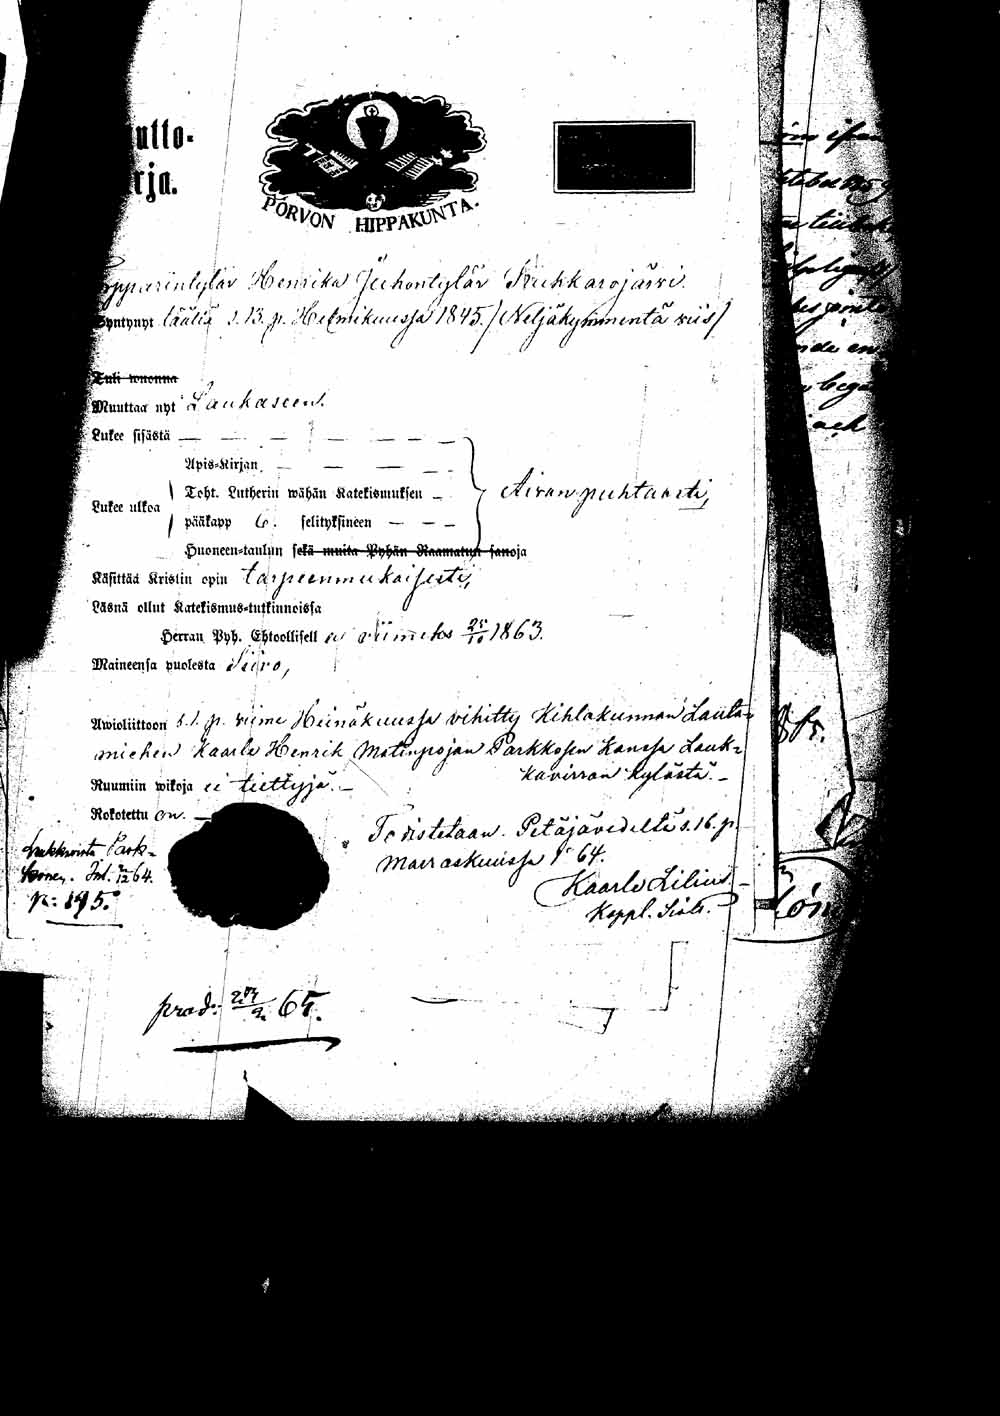 utto-
rja.
PORVON HIPPAKUNTA.
Henrika Juhontytär Kukkarojärvi
Syntynyt täällä s. 13. p. Helmikuussa 1845. / Neljäkymmentä viis /
Tuli wuonna
Muuttaa nyt Laukaseen.
Lukee sisästä — — — — — — —
Apis-Kirjan — — — — —
Lukee ulkoa
Toht. Lutherin wähän Katekismuksen —
Aivan puhtaasti,
pääkapp 6. selityksineen — — —
Huoneen-taulun sekä muita Pyhän Raamatun sanoja
Käsittää Kristin opin tarpeenmukaisesti,
Läsnä ollut Katekismus-tutkinnoissa
Herran Pyh. Ehtoollisell a viimeks 25/10 1863.
Maineensa puolesta Siivo,
Awioliittoon s. 1. p. viime Heinäkuussa vihitty Kihlakunnan Lauta-
miehen Kaarle Henrik Matinpojan Parkkosen kanssa Lauk-
kavirran kylästä. –
Ruumiin wikoja ei tiettyjä. –
Rokotettu on. –
Todistetaan. Petäjävedeltä s. 16. p.
Marraskuussa 1864.
Kaarlo Lilius
Koppl.
Park-
konen. 64.
N: 195.
prod: 65.